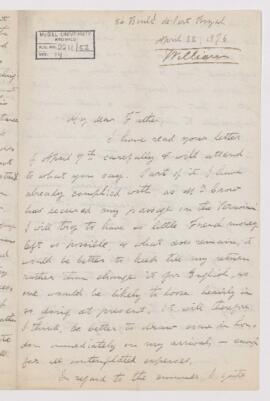 McGILL UNIVERSITY
ARCHIVES
ACC. NO. 2211/52
REF. 14
56 Boul'd de Port Royal
April 22, 1876
William
My dear Father,
I have read your letter
of April 7th carefully & will attend
to what you say. Part of it I have
already complied with, as Mr Crow
has secured my passage on the Peruvian
I will try to have as little French money
left as possible, & what does remain, it
would be better to keep till my return
rather than change it for English, as
one would be likely to loose heavily in
so doing at present. It will therefore,
I think, be better to draw some in Lon-
don immediately on my arrival, – enough
for all contemplated expenses.
In regard to the summer, I quite